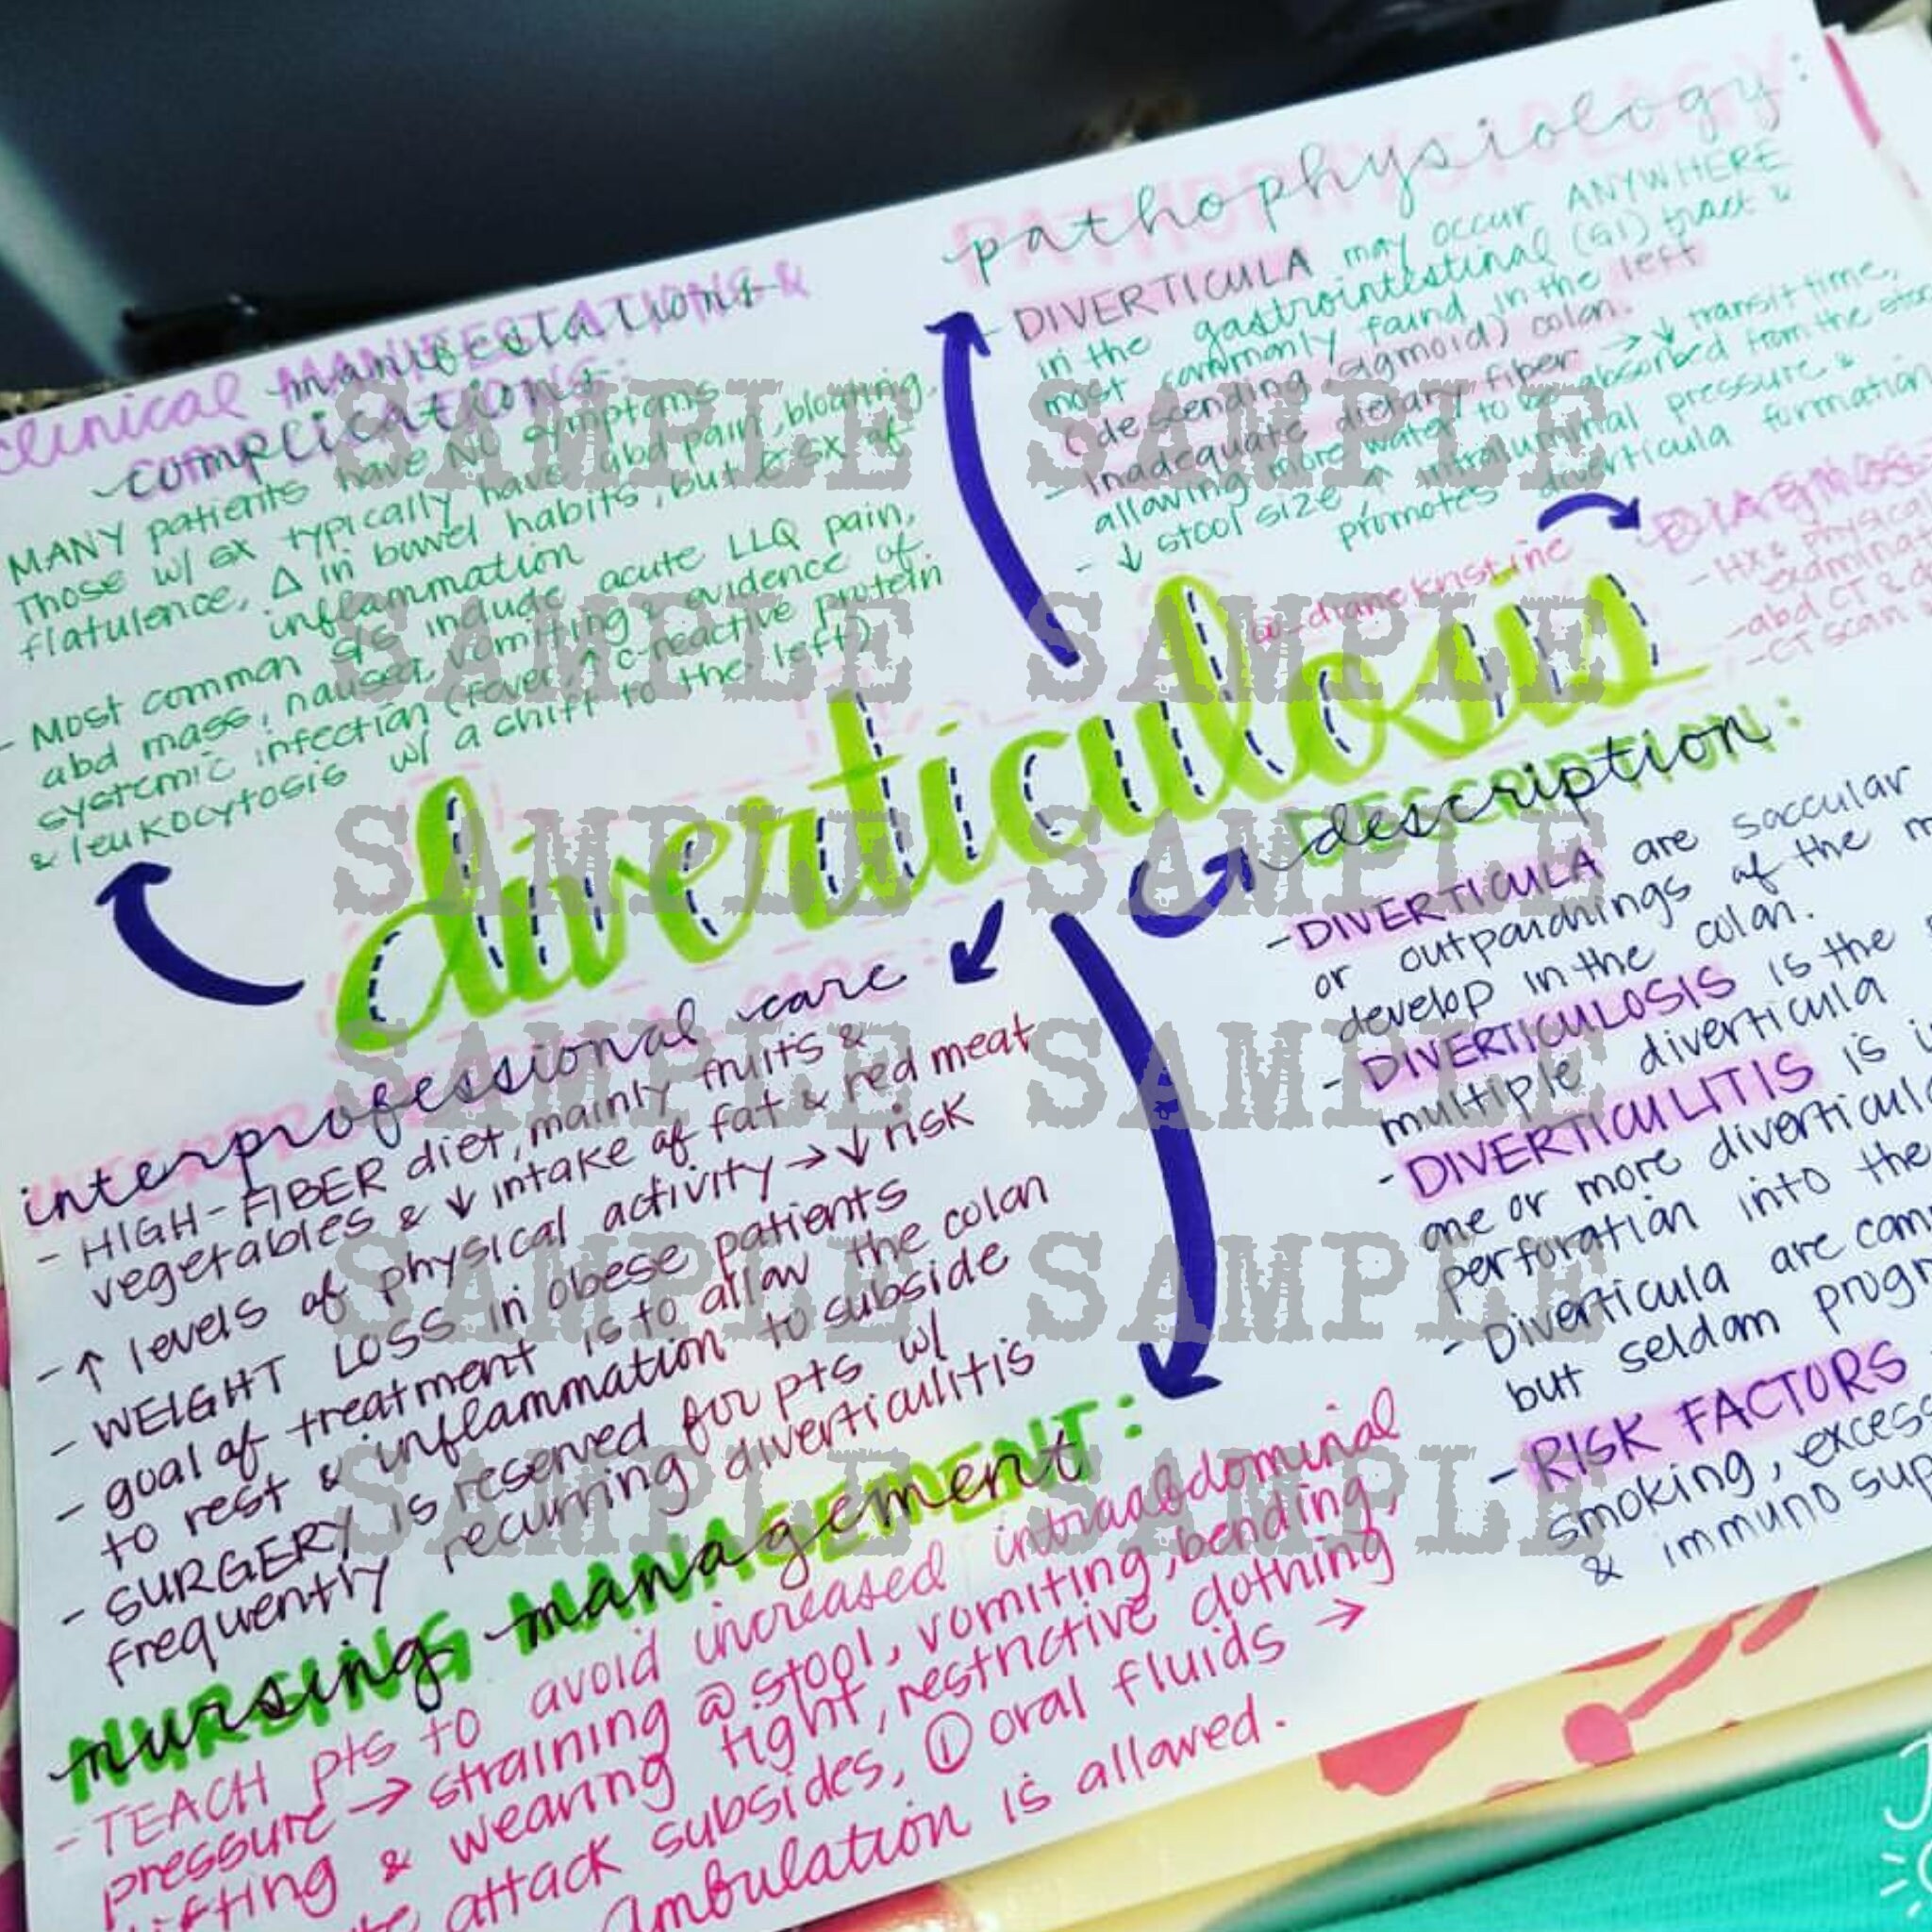 clinical MANIFESTATIONS &
manifestations
COMPLICATIONS:
complications
MANY patients have NO symptoms
Those w/ sx typically have abd pain, bloating,
flatulence, Δ in bowel habits, but sx of
inflammation
- Most common s/s include acute LLQ pain,
abd mass, nausea, vomiting & evidence of
systemic infection (fever, ↑ c-reactive protein
& leukocytosis w/ a shift to the left)
PATHOPHYSIOLOGY:
pathophysiology
- DIVERTICULA may occur ANYWHERE
in the gastrointestinal (GI) tract &
most commonly found in the left
(descending, sigmoid) colon.
- Inadequate dietary fiber → ↓ transit time,
allowing more water to be absorbed from the
- ↓ stool size, ↑ intraluminal pressure &
promotes diverticula formation
- Hx & physical
- abd CT &
- CT scan
@_dianekristine
diverticulosis
DESCRIPTION:
description
- DIVERTICULA are saccular
or outpouchings of the
develop in the colon.
- DIVERTICULOSIS is the
multiple diverticula
- DIVERTICULITIS is
one or more
perforation into the
- Diverticula are
but seldom
- RISK FACTORS
smoking,
& immuno
interprofessional care
- HIGH-FIBER diet, mainly fruits &
vegetables & ↓ intake of fat & red meat
- ↑ levels of physical activity → ↓ risk
- WEIGHT LOSS in obese patients
- goal of treatment is to allow the colon
to rest & inflammation to subside
- SURGERY is reserved for pts w/
frequently recurring diverticulitis
NURSING MANAGEMENT:
nursing management
- TEACH pts to avoid increased intraabdominal
pressure → straining @ stool, vomiting, bending,
lifting & wearing tight, restrictive clothing
attack subsides, ① oral fluids →
ambulation is allowed.
SAMPLE SAMPLE
SAMPLE SAMPLE
SAMPLE SAMPLE
SAMPLE SAMPLE
SAMPLE SAMPLE
SAMPLE SAMPLE